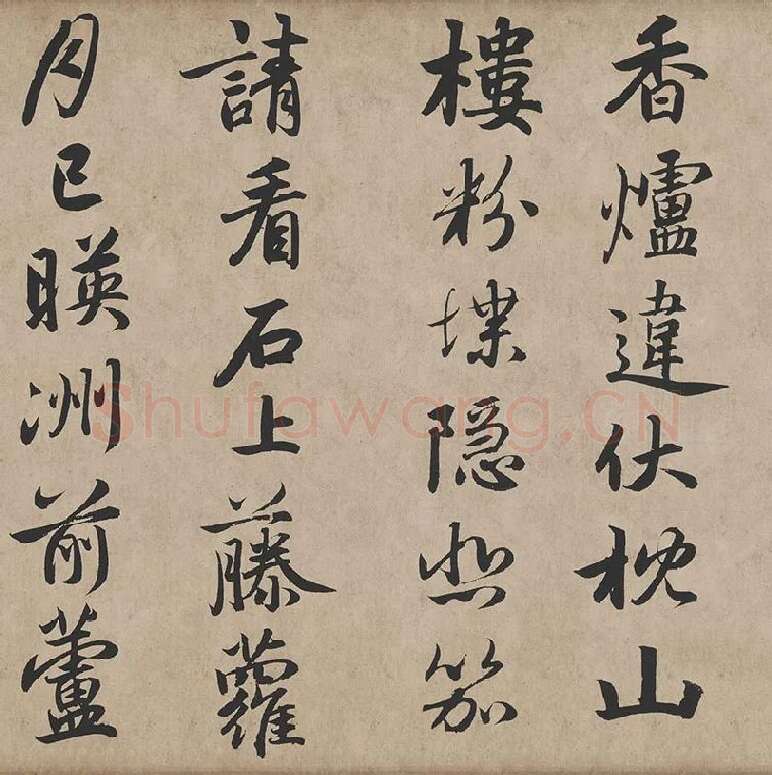 香爐違伏枕山
樓粉堞隐悲笳
請看石上藤蘿
月已暎洲前蘆
Shufawang.CN